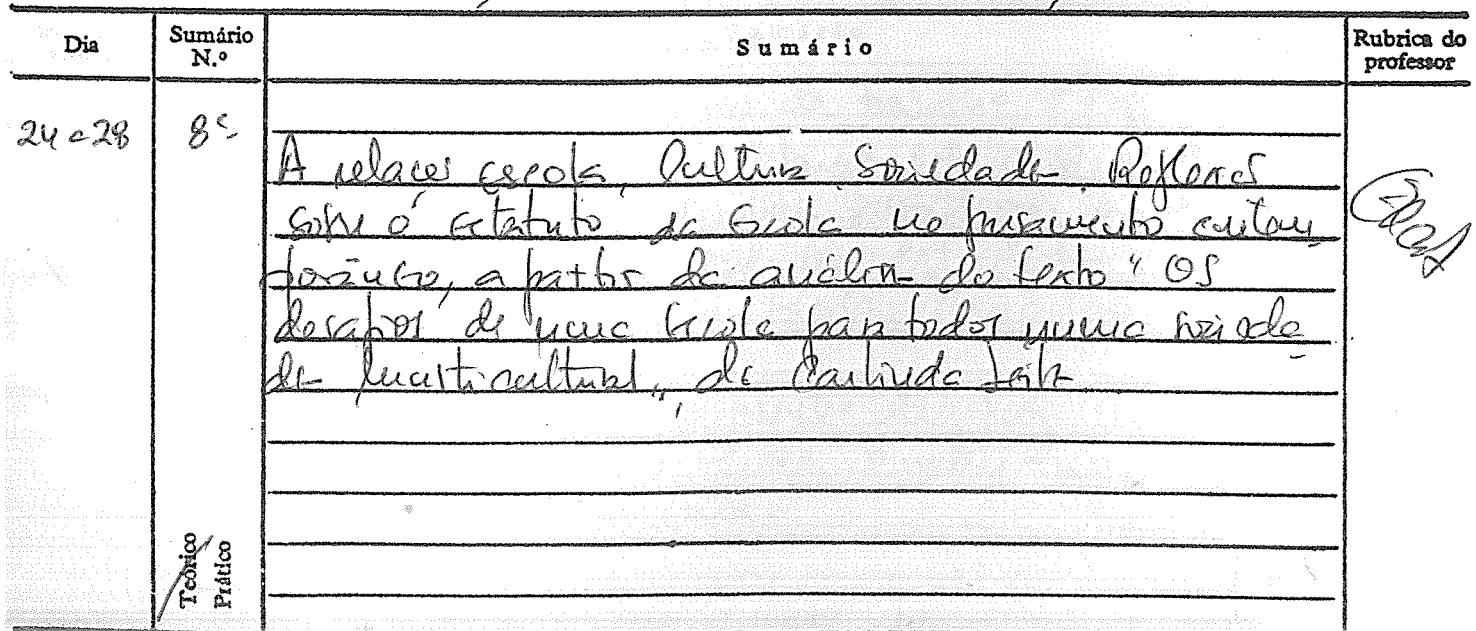 Dia
Sumário N.º
Sumário
Rubrica do professor
24 e 28
8ª
A relação escola, Cultura, Sociedade. Reflexões
sobre o estatuto da Escola no pensamento contem
porâneo, a partir da análise do texto "Os
desafios de uma Escola para todos numa socieda
de multicultural", de Carlinda Leite
Teórico
Prático